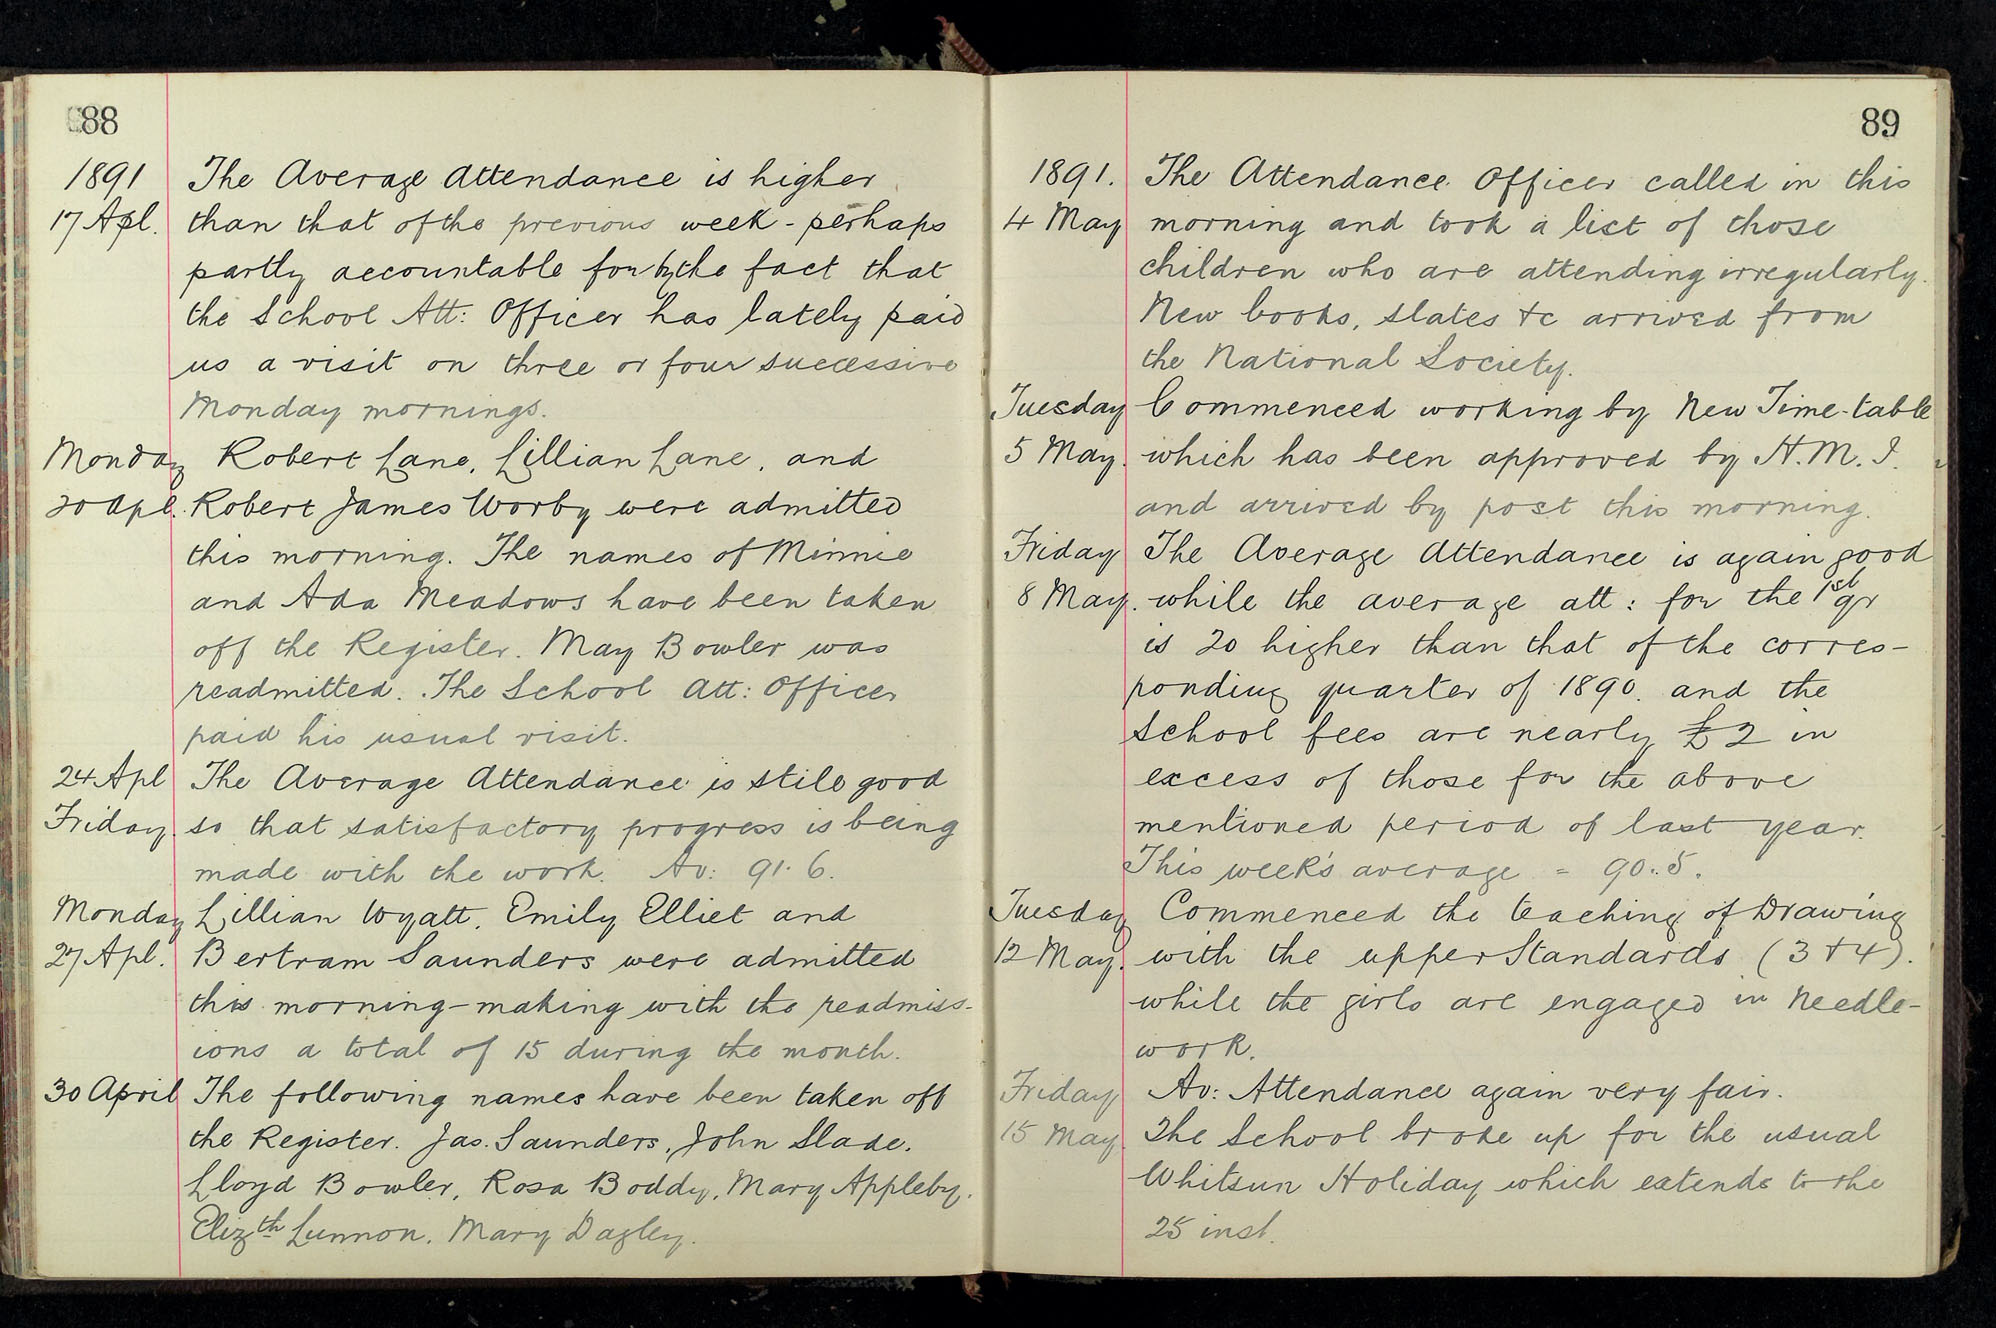 88
1891 The Average Attendance is higher
17 Apl. than that of the previous week - perhaps
partly accountable for by the fact that
the School Att: Officer has lately paid
us a visit on three or four successive
Monday mornings.
Monday Robert Lane, Lillian Lane, and
20 Apl. Robert James Worby were admitted
this morning. The names of Minnie
and Ada Meadows have been taken
off the Register. May Bowler was
readmitted. The School Att: Officer
paid his usual visit.
24 Apl The Average Attendance is still good
Friday so that satisfactory progress is being
made with the work. Av: 91.6.
Monday Lillian Wyatt, Emily Elliet and
27 Apl. Bertram Saunders were admitted
this morning - making with the readmiss-
ions a total of 15 during the month.
30 April The following names have been taken off
the Register. Jas. Saunders, John Slade.
Lloyd Bowler, Rosa Boddy, Mary Appleby.
Elizth Lunnon. Mary Dagley.
89
1891. The Attendance Officer called in this
4 May morning and took a list of those
children who are attending irregularly.
New books, slates &c arrived from
the National Society.
Tuesday Commenced working by New Time-table
5 May. which has been approved by H.M.I.
and arrived by post this morning.
Friday The Average Attendance is again good
8 May. while the average att: for the 1st qr
is 20 higher than that of the corres-
ponding quarter of 1890. and the
School fees are nearly £2 in
excess of those for the above
mentioned period of last year.
This week's average = 90.5.
Tuesday Commenced the teaching of Drawing
12 May. with the upper Standards (3 & 4).
while the girls are engaged in Needle-
work.
Friday Av: Attendance again very fair.
15 May. The School broke up for the usual
Whitsun Holiday which extends to the
25 inst.